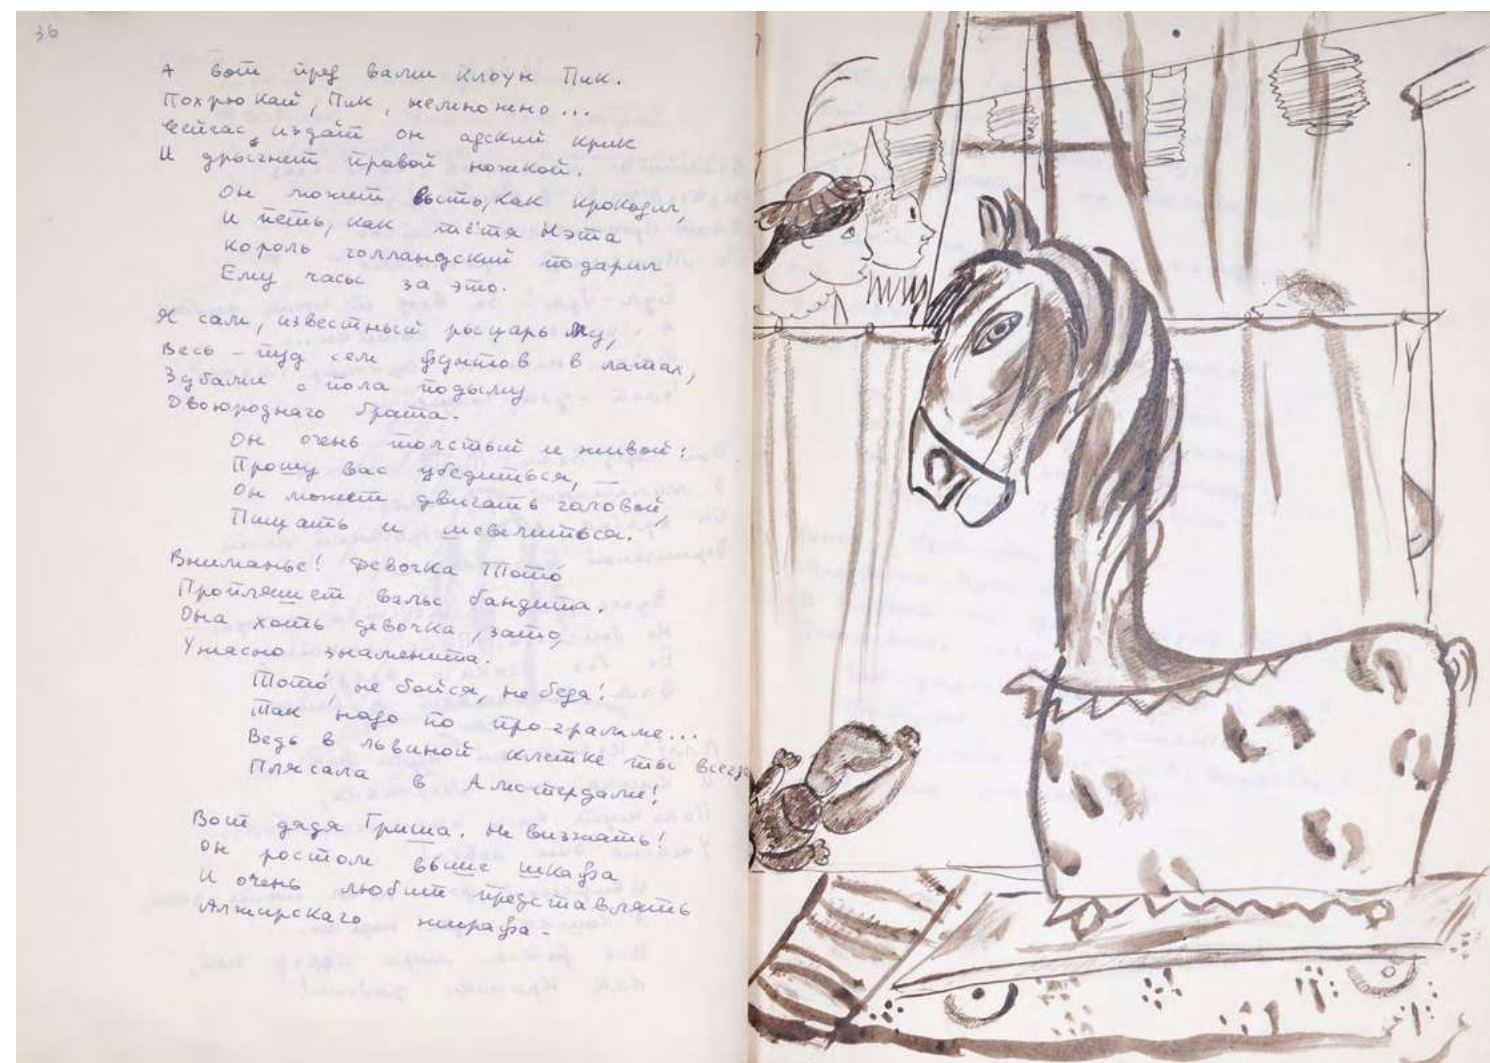 36
А вот пред вами клоун Пик.
Похрюкай, Пик, немножко...
Сейчас издаст он адский крик
И дрыгнет правой ножкой.
Он может выть, как крокодил,
И петь, как тётя Нэта
Король голландский подарил
Ему часы за это.
Я сам, известный рыцарь Му,
Весь – пуд сем фунтов в латах,
Зубами с пола подыму
Двоюроднаго брата.
Он очень толстый и живой:
Прошу вас убедиться,
Он может двигать головой
Пищать и шевелиться.
Вниманье! Девочка Тото́
Пропляшет вальс бандита.
Она хоть девочка, зато,
Ужасно знаменита.
Тото́, не бойся, не беда!
Так надо по программе...
Ведь в львиной клетке ты всегда
Плясала в Амстердаме!
Вот дядя Гриша. Не визжать!
Он ростом выше шкафа
И очень любит представлять
Алжирскаго жирафа.